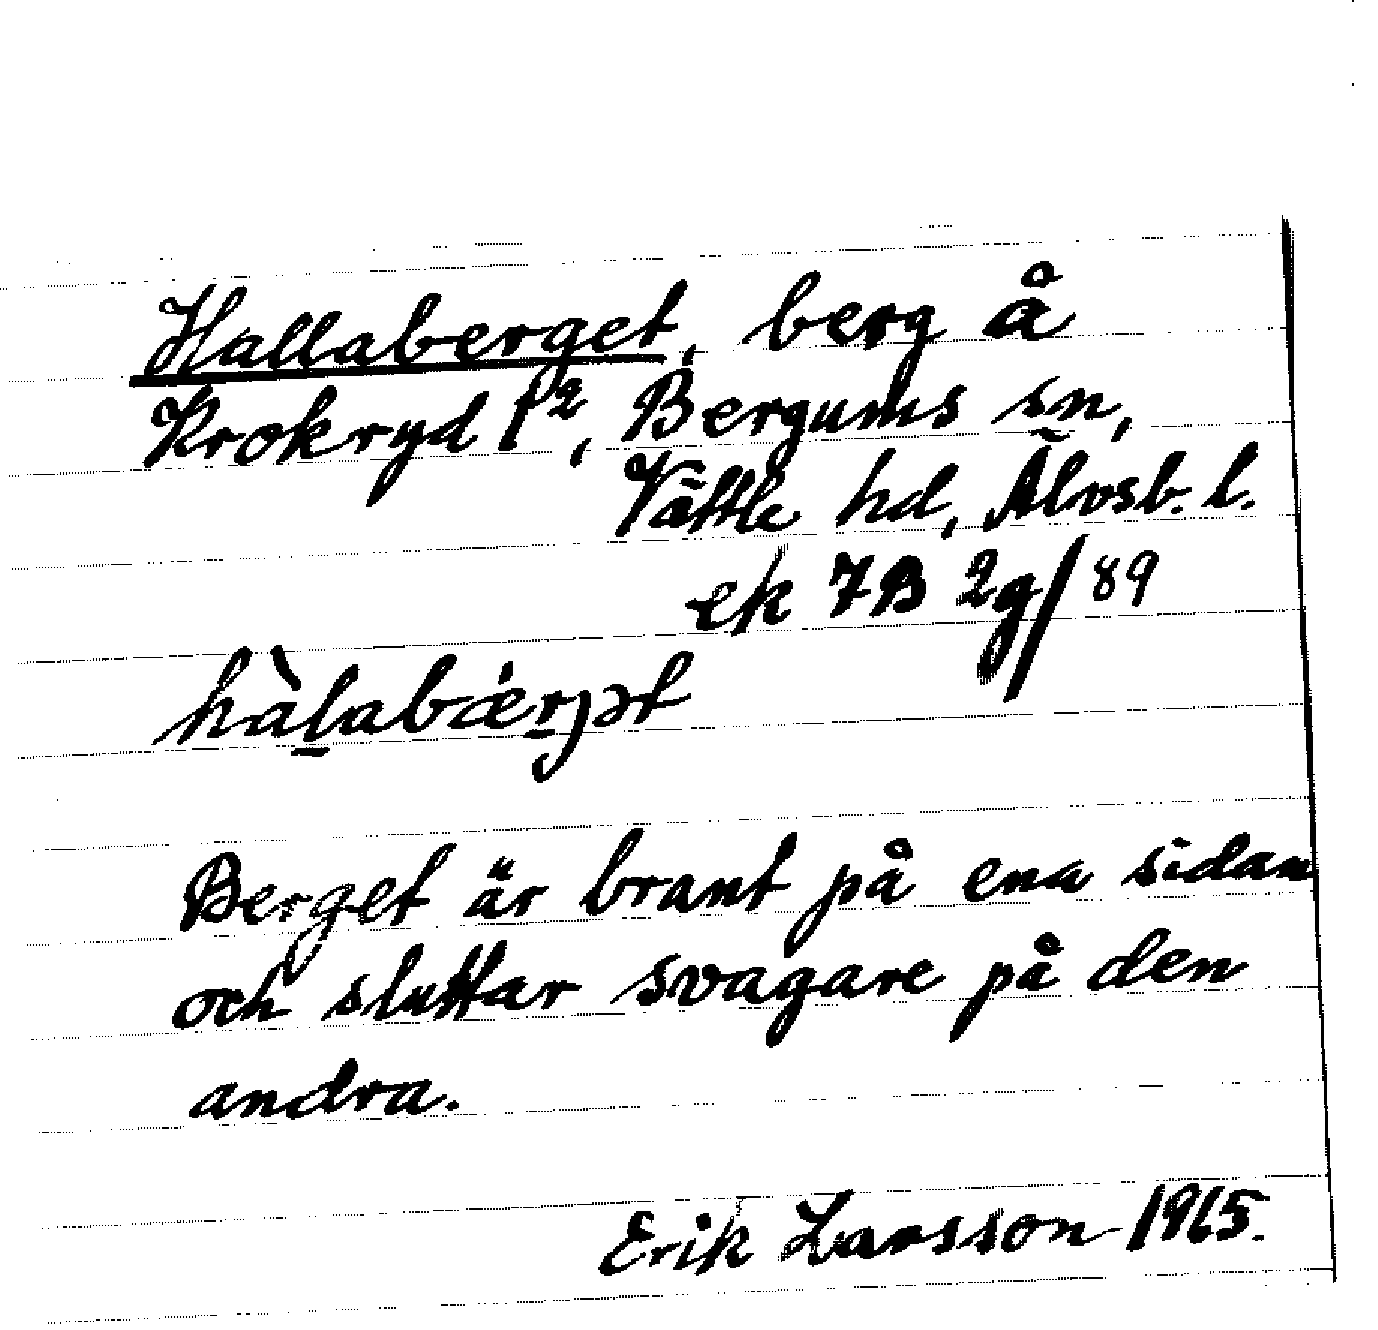 Hallaberget, berg å
Krokryd 1², Bergums sn,
Vättle hd, Älvsb. l.
ek 7B 2g/89
hàlabæ̀rjət
Berget är brant på ena sidan
och sluttar svagare på den
andra.
Erik Larsson 1965.